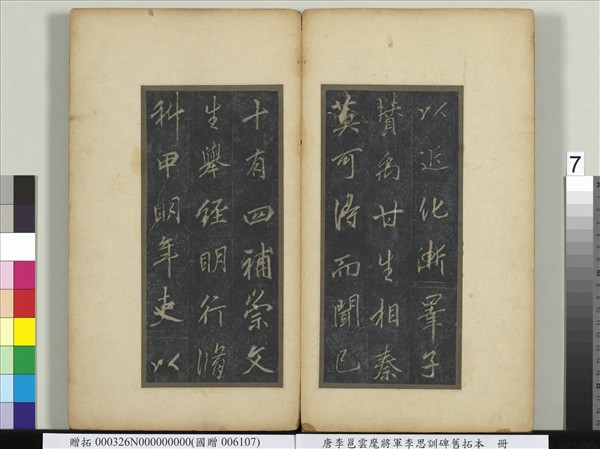 以近化漸羣子
賛禹甘生相秦
莫可得而聞已
十有四補崇文
生舉經明行脩
科甲明年吏以
7
贈拓 000326N000000000(國贈 006107)
唐李邕雲麾將軍李思訓碑舊拓本 冊